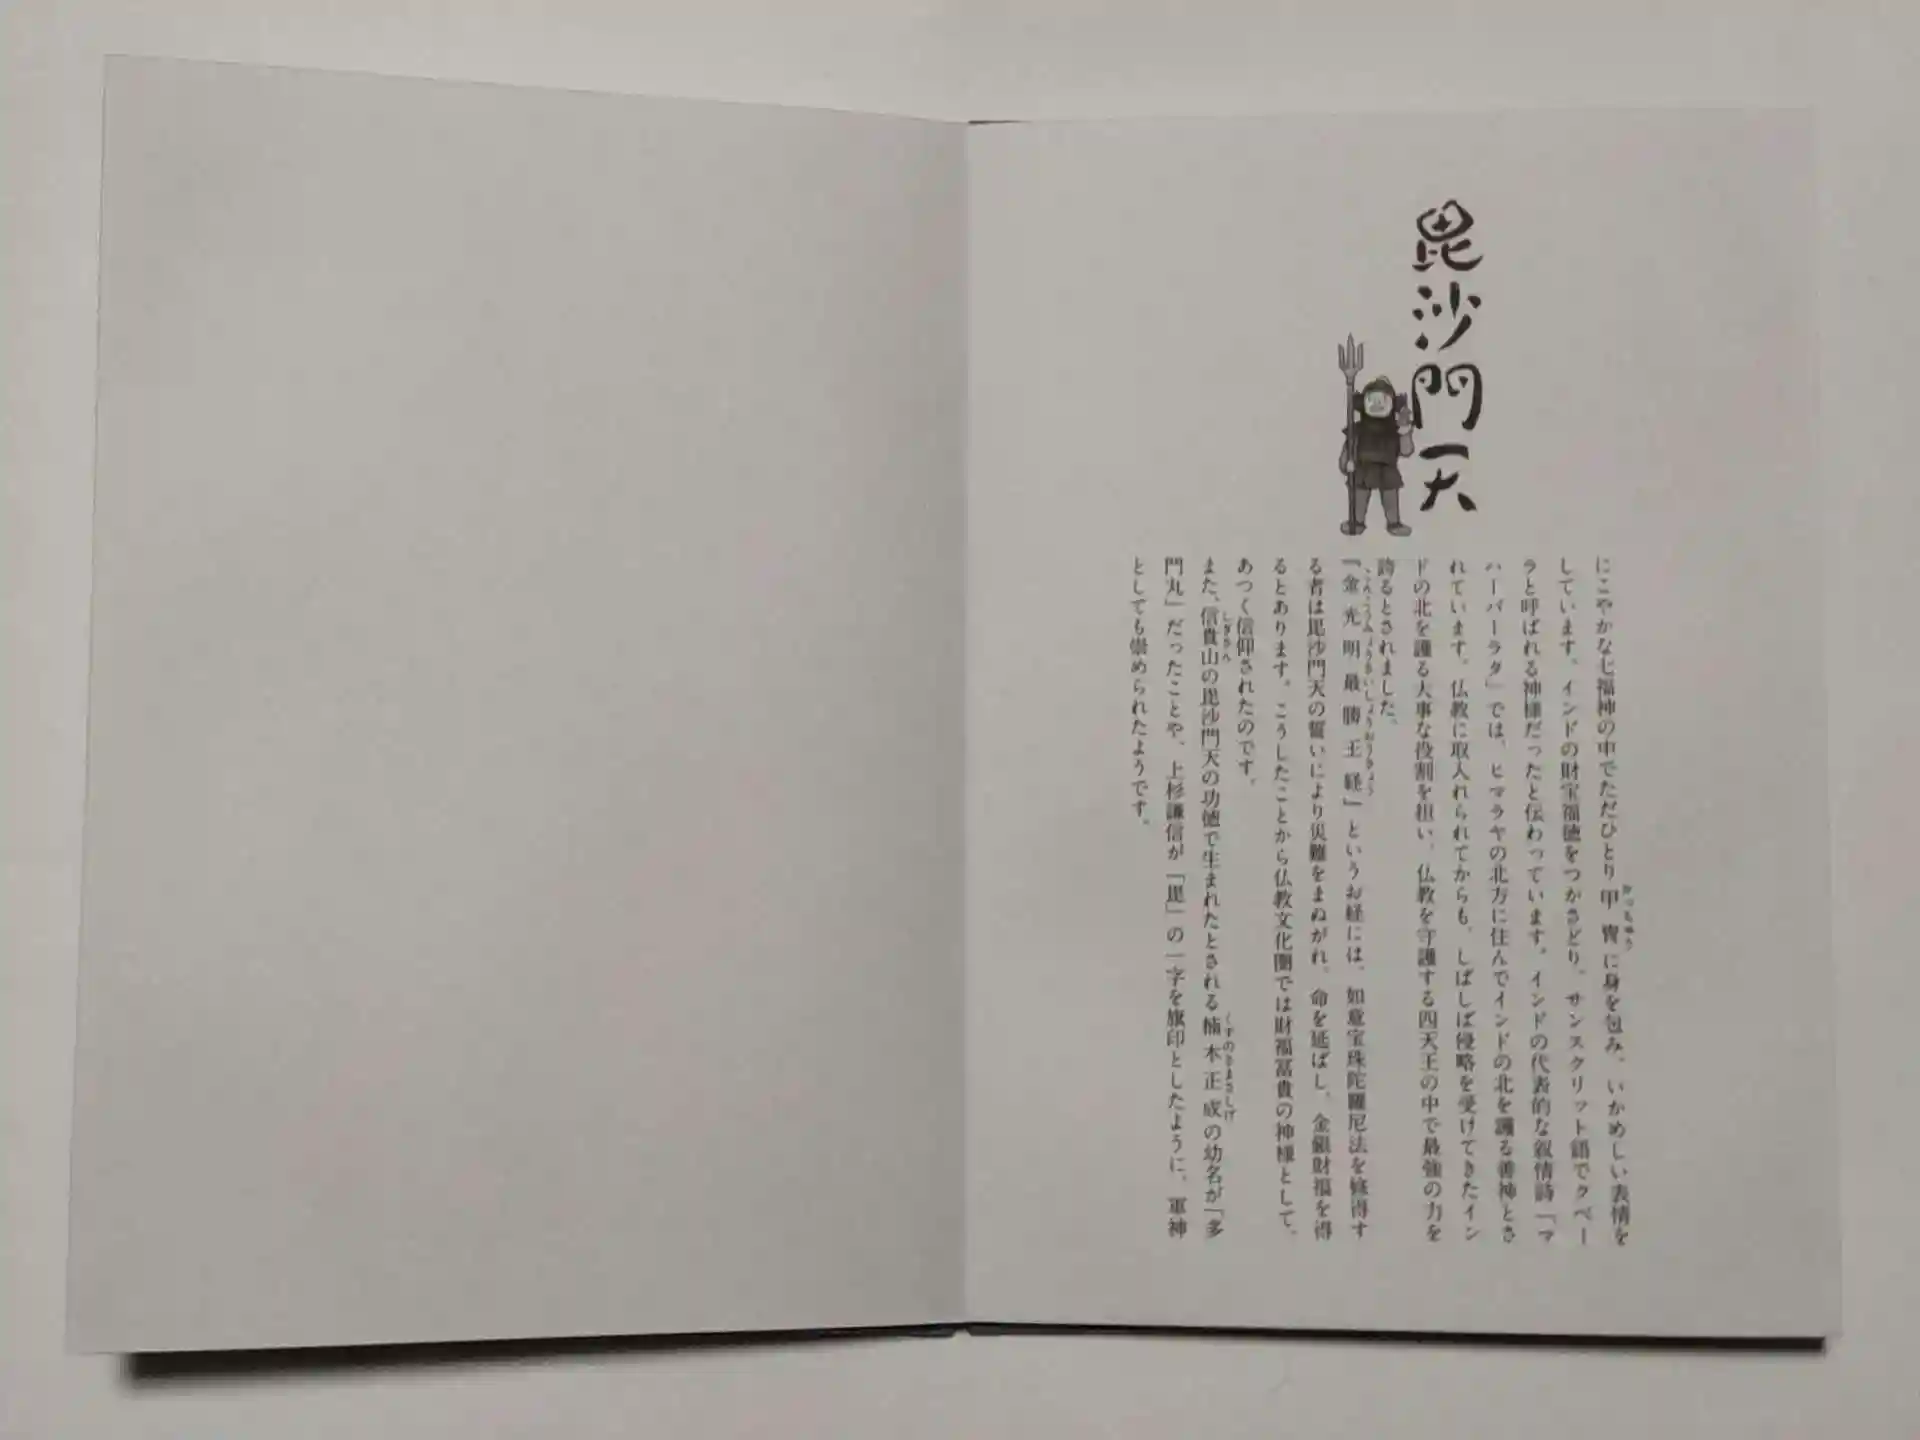 毘沙門天
にこやかな七福神の中でただひとり甲冑に身を包み、いかめしい表情を
しています。インドの財宝福徳をつかさどり、サンスクリット語でクベー
ラと呼ばれる神様だったと伝わっています。インドの代表的な叙情詩「マ
ハーバーラタ」では、ヒマラヤの北方に住んでインドの北を護る善神とさ
れています。仏教に取入れられてからも、しばしば侵略を受けてきたイン
ドの北を護る大事な役割を担い、仏教を守護する四天王の中で最強の力を
誇るとされました。
『金光明最勝王経』というお経には、如意宝珠陀羅尼法を修得す
る者は毘沙門天の誓いにより災難をまぬがれ、命を延ばし、金銀財福を得
るとあります。こうしたことから仏教文化圏では財福富貴の神様として、
あつく信仰されたのです。
また、信貴山の毘沙門天の功徳で生まれたとされる楠木正成の幼名が「多
門丸」だったことや、上杉謙信が「毘」の一字を旗印としたように、軍神
としても崇められたようです。
かっちゅう
こんこうみょうさいしょうおうきょう
しぎさん
くすのきまさしげ